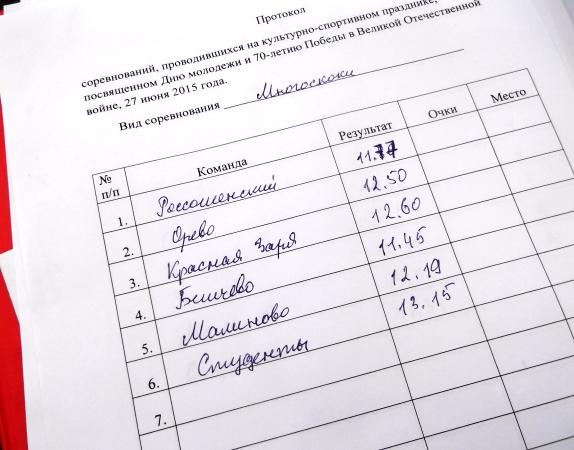 Протокол
соревнований, проводившихся на культурно-спортивном празднике,
посвященном Дню молодежи и 70-летию Победы в Великой Отечественной
войне, 27 июня 2015 года.
Вид соревнования Многоскоки
№ п/п Команда Результат Очки Место
1. Россошенский 11.77
2. Орево 12.50
3. Красная Заря 12.60
4. 11.45
5. Малиново 12.19
6. Студенты 13.15
7.